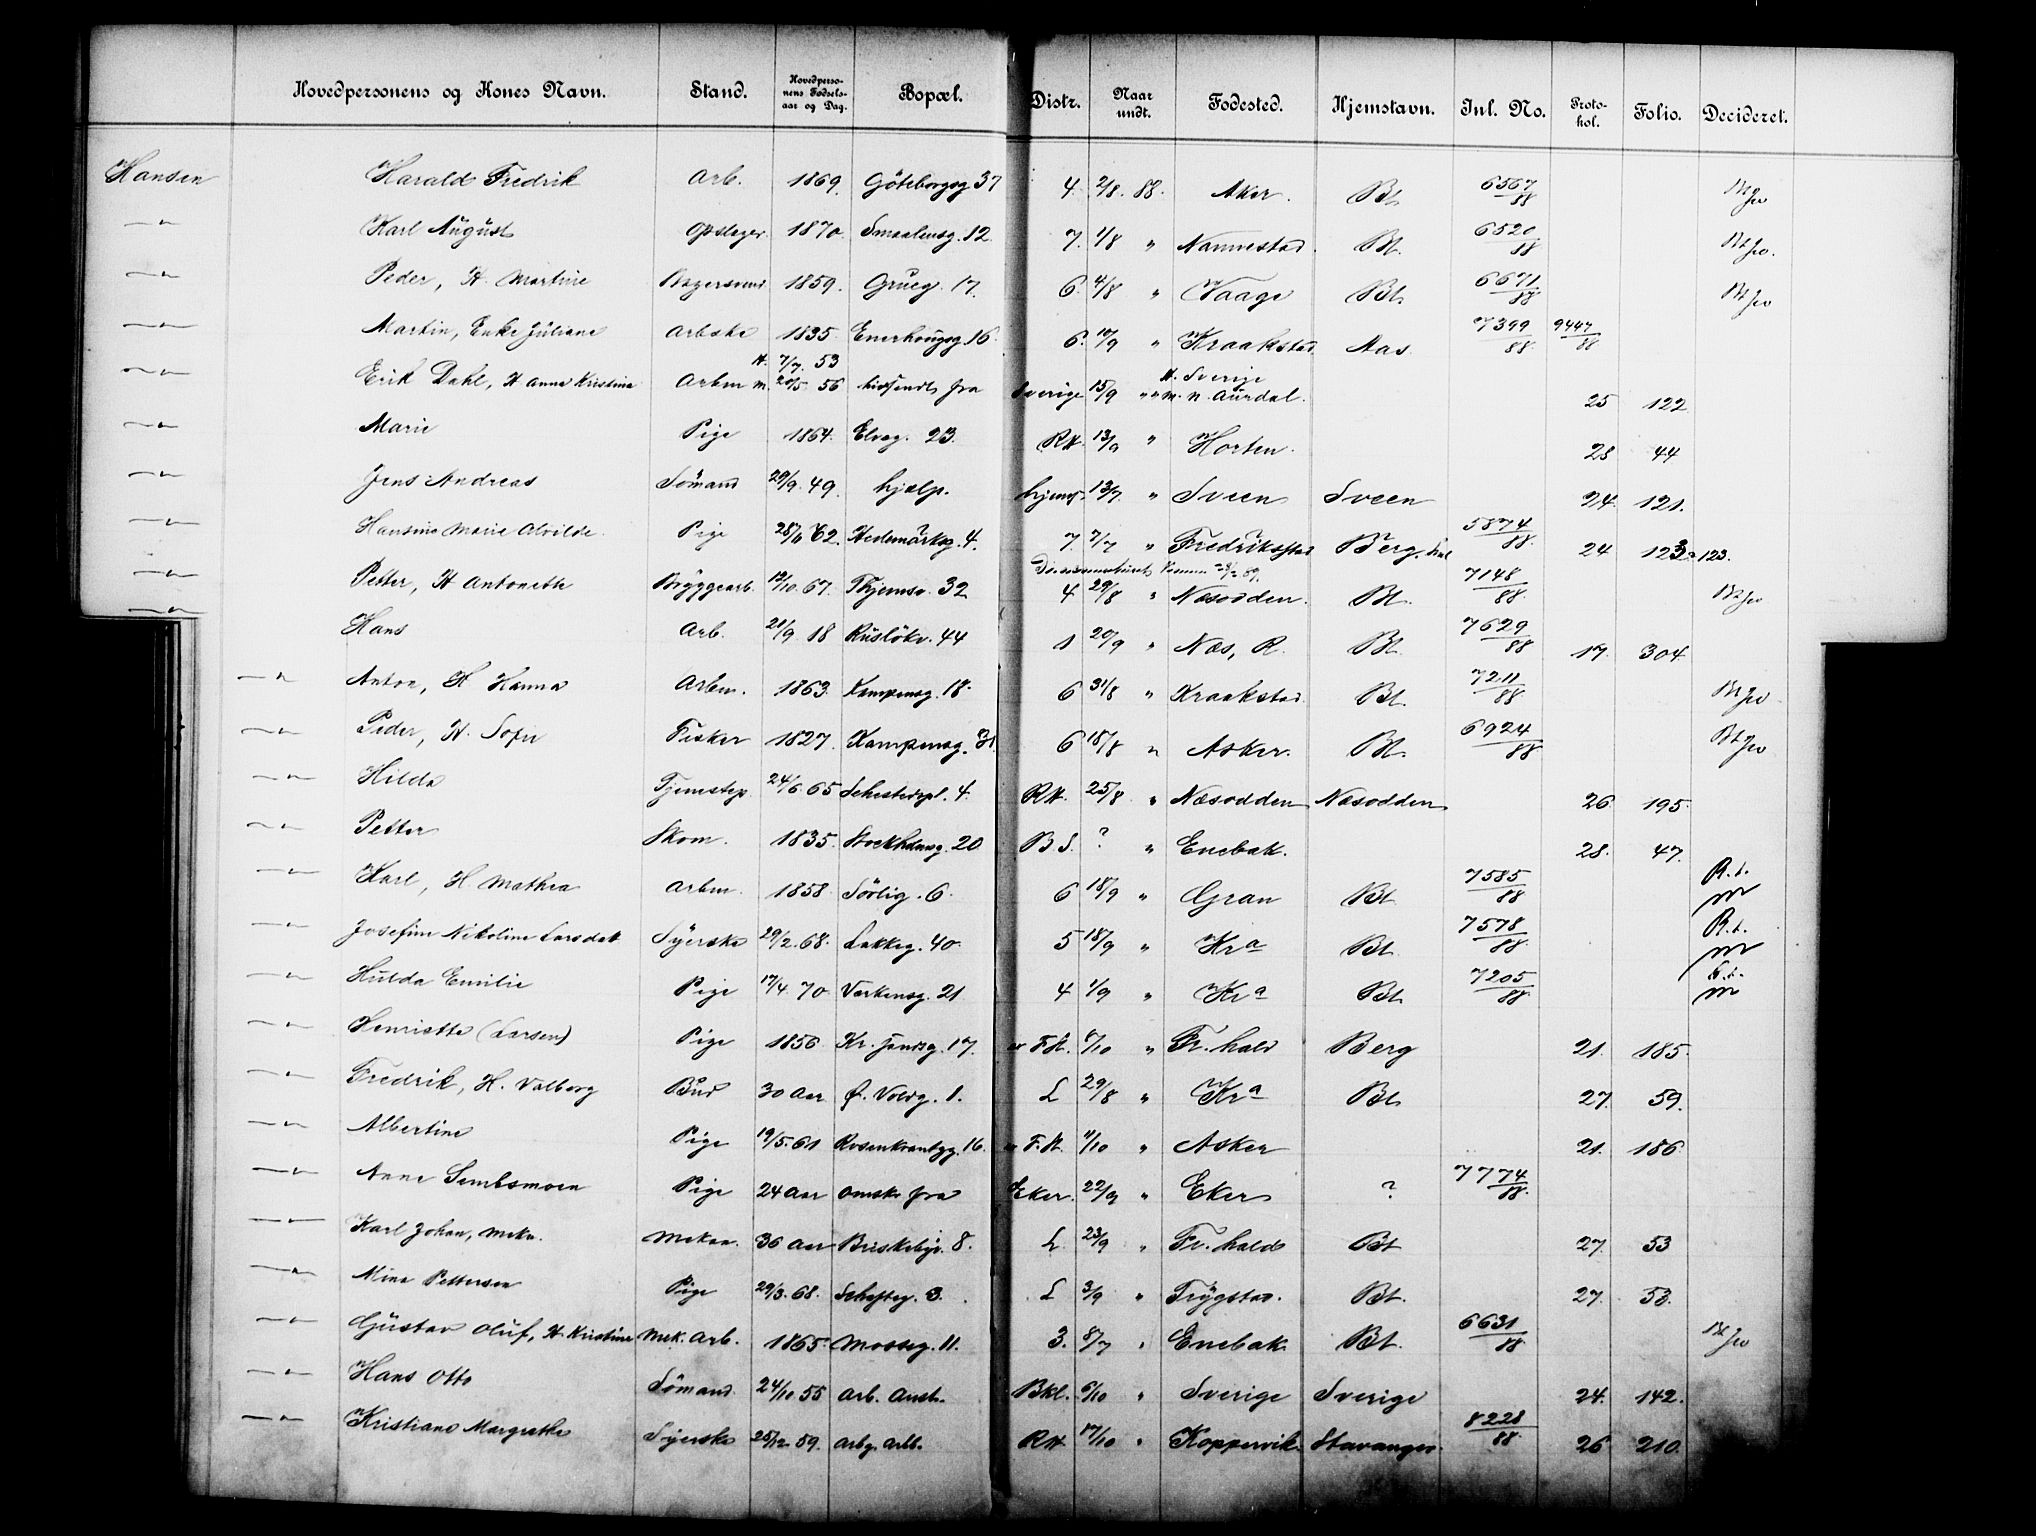 Hovedpersonens og Kones Navn. Stand. Hovedpersonens Fødselsaar og Dag. Bopæl. Distr. Naar undt. Fødested. Hjemstavn. Inl. No. Protokol. Folio. Decideret.
Hansen Harald Fredrik Arb. 1869. Göteborgsg 37 4. 2/8. 88. Aker. Bt. 6567/88
—"— Karl August Opslager. 1870. Smaalensg. 12. 7. 1/8 " Nannestad. Bt. 6520/88
—"— Peder, H. Martine Bagersvend 1859. Grüeg. 17. 6. 4/8 " Vaage Bt. 6671/88
—"— Martin, Enke Juliane Arbske 1835. Enerhougsg. 16. 6. 10/9 " Kraakstad Aas. 7399/88 9447/88
—"— Erik Dahl, H Anna Kristina Arbm H. 7/7. 53 M. 20/5 56 hidsendt fra Sverige 15/9 " H. Sverige M. N. Aurdal. 25 122
—"— Marie Pige 1864. Elveg. 23. RH. 13/9 " Horten. 28 44
—"— Jens Andreas Sömand 29/9. 49. hjælp. hjemf. 13/7. " Sveen Sveen 24. 121.
—"— Hansine Marie Alvilde Pige 28/11 62. Hedemarksg. 4. 7. 7/7 " Fredrikstad Berg, Sml 5874/88. 24 123 123.
—"— Petter, H Antonette Bryggearb. 12/10. 67. Thjemsv. 32 4 29/8 " Næsodden. Bt. 7148/88.
—"— Hans Arb. 21/9 18 Rusløkv. 44 1 20/9 " Næs, R. Bt. 7629/88 17. 304.
—"— Anton, H Hanna Arbm. 1863. Kampensg. 18. 6 31/8 " Kraakstad. Bt. 7211/88
—"— Peder, H. Sofie Fisker 1827. Kampensg. 31. 6 18/8 " Asker. Bt. 6924/88
—"— Hilda Tjenstep. 24/6. 65 Sehestedspl. 4. RH. 25/8 " Næsodden Næsodden 26 195.
—"— Petter Skom. 1835. Stockholmsg. 20 B.S. ? " Enebak. 28. 47.
—"— Karl, H. Mathea Arbm. 1858. Sörlig. 6. 6 18/9 " Gran Bt. 7585/88 R.t.
—"— Josefine Nikoline Larsdat. Syerske 29/2. 68. Lakkeg. 40. 5 18/9 " Kra Bt. 7578/88. R.t.
—"— Hulda Emilie Pige 17/4. 70. Verkensg. 21 4 1/9 " Kra Bt. 7205/88.
—"— Henriette (Larsen) Pige 1856. Kr. 17. F.A. 6/10 " Fr.hald Berg 21. 185.
—"— Fredrik, H. Valborg Bud 30 Aar Ø. Voldg. 1. L 29/8 " Kra Bt. 27. 59.
—"— Albertine Pige 19/5. 61 Rosenkrantzg. 16. F.A. 11/10 " Asker 21. 186.
—"— Anne Sembsmoen Pige 24 Aar ønsk. fra Eker. 22/9 " Eker ? 7774/88.
—"— Karl Johan, Mekn. Mekan. 36 Aar Briskebyv. 8. L. 23/9 " Fr.hald Bt 27. 53
—"— Mina Pettersen Pige 29/3. 68. Schafteg. 3. L 3/9 " Trøgstad. Bt. 27. 58.
—"— Gustav Oluf, H. Kristine Mek. Arb. 1865. Mosseg. 11. 3. 8/7 " Enebak. Bt. 6631/88
—"— Hans Otto Sömand 24/10. 55 Arb. Anst. Bkl. 6/10 " Sverige Sverige 24. 142.
—"— Kristiane Margrethe Syerske 25/12. 59. Arbg. Arb. RH. 17/10 " Koppervik. Stavanger. 8228/88. 26 210.